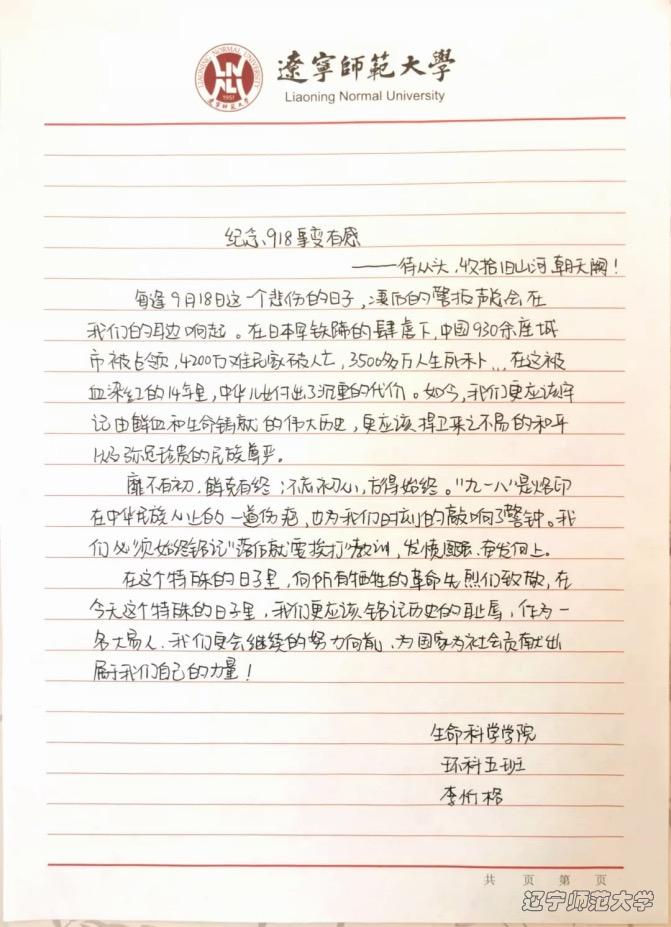 LIAONING NORMAL UNIVERSITY
LNNU
1951
辽宁师范大学
遼寧師範大學
Liaoning Normal University
纪念、918事变有感
——待从头,收拾旧山河,朝天阙!
每逢9月18日这一个悲伤的日子,凄厉的警报声总会在
我们的耳边响起。在日本军铁蹄的肆虐下,中国930余座城
市被占领,4200万难民家破人亡,3500多万人生死未卜...在这被
血染红的14年里,中华儿女付出了沉重的代价。如今,我们更应该牢
记由鲜血和生命铸就的伟大历史,更应该捍卫来之不易的和平
以及弥足珍贵的民族尊严。
靡不有初,鲜克有终;不忘初心,方得始终。“九一八”是烙印
在中华民族心上的一道伤疤,也为我们时刻的敲响了警钟。我
们必须始终铭记“落后就要挨打”教训,发愤图强,奋发向上。
在这个特殊的日子里,向所有牺牲的革命先烈们致敬,在
今天这个特殊的日子里,我们更应该铭记历史的耻辱,作为一
名大易人,我们更会继续的努力向前,为国家为社会贡献出
属于我们自己的力量!
生命科学学院
环科五班
李 格
共 页 第 页
辽宁师范大学